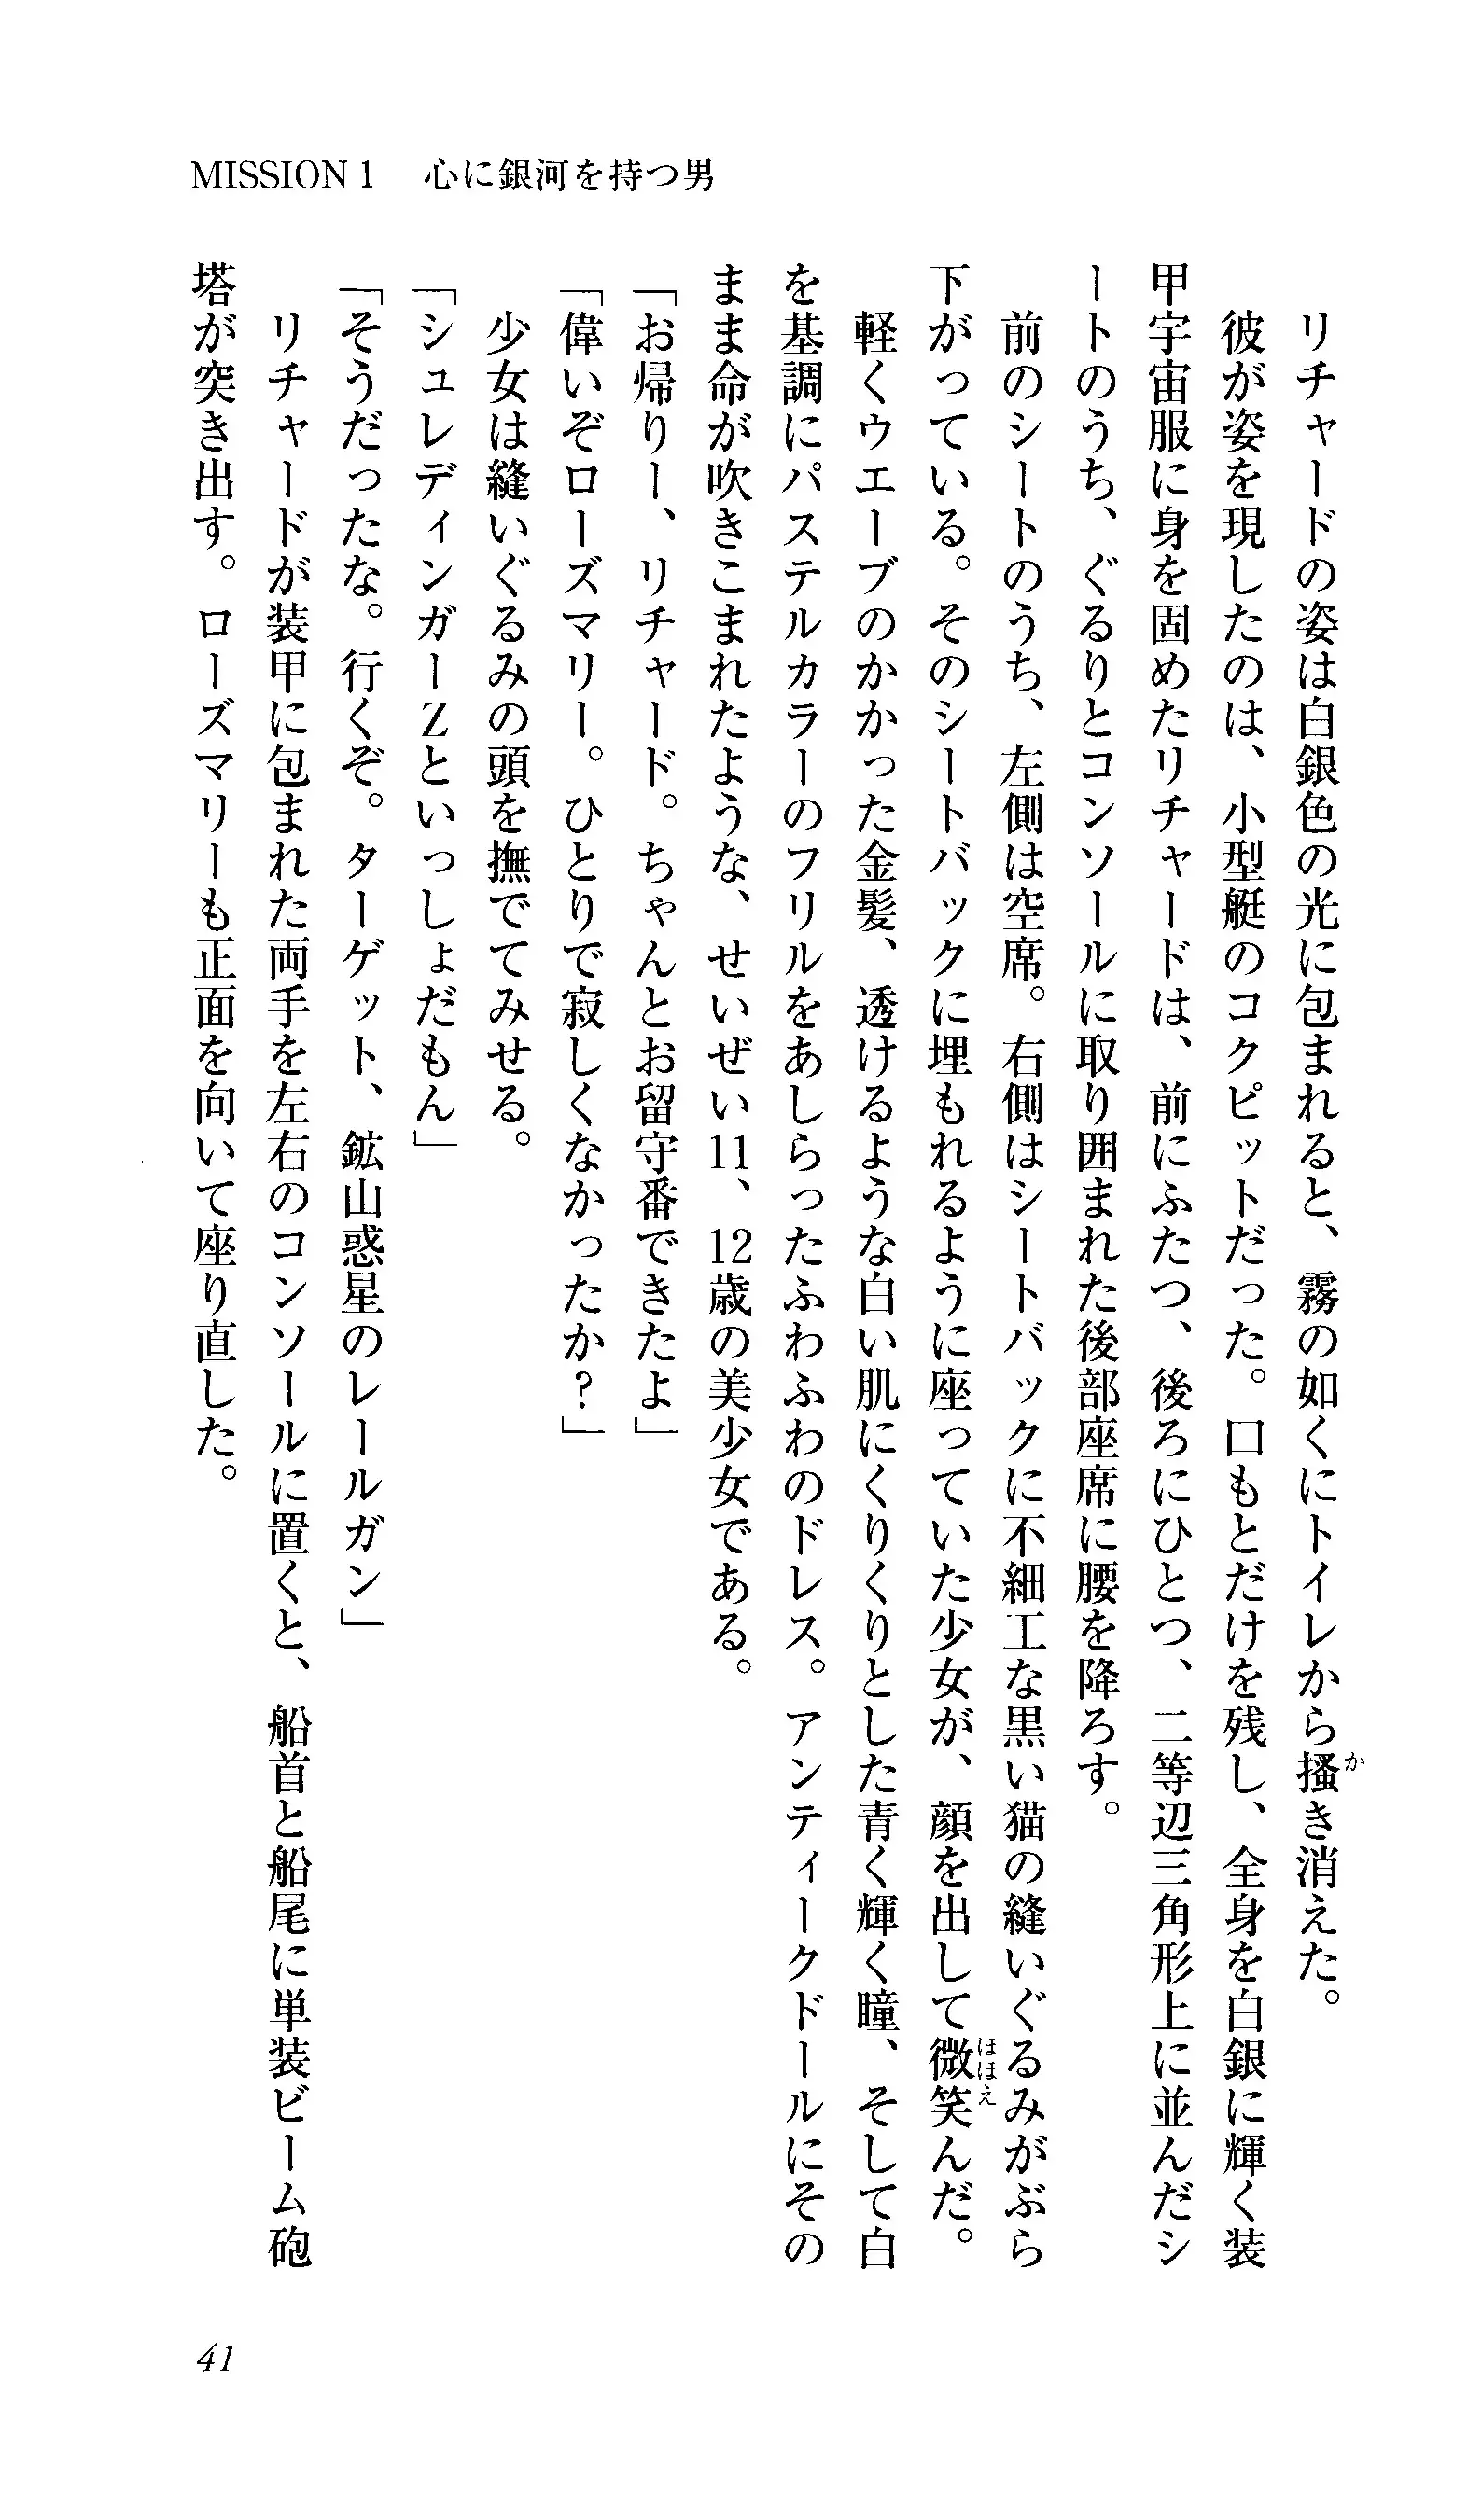 MISSION 1　心に銀河を持つ男
　リチャードの姿は白銀色の光に包まれると、霧の如くにトイレから掻き消えた。
　彼が姿を現したのは、小型艇のコクピットだった。口もとだけを残し、全身を白銀に輝く装
甲宇宙服に身を固めたリチャードは、前にふたつ、後ろにひとつ、二等辺三角形上に並んだシ
ートのうち、ぐるりとコンソールに取り囲まれた後部座席に腰を降ろす。
　前のシートのうち、左側は空席。右側はシートバックに不細工な黒い猫の縫いぐるみがぶら
下がっている。そのシートバックに埋もれるように座っていた少女が、顔を出して微笑んだ。
　軽くウエーブのかかった金髪、透けるような白い肌にくりくりとした青く輝く瞳、そして白
を基調にパステルカラーのフリルをあしらったふわふわのドレス。アンティークドールにその
まま命が吹きこまれたような、せいぜい11、12歳の美少女である。
「お帰りー、リチャード。ちゃんとお留守番できたよ」
「偉いぞローズマリー。ひとりで寂しくなかったか？」
　少女は縫いぐるみの頭を撫でてみせる。
「シュレディンガーZといっしょだもん」
「そうだったな。行くぞ。ターゲット、鉱山惑星のレールガン」
　リチャードが装甲に包まれた両手を左右のコンソールに置くと、船首と船尾に単装ビーム砲
塔が突き出す。ローズマリーも正面を向いて座り直した。
か
ほほえ
41